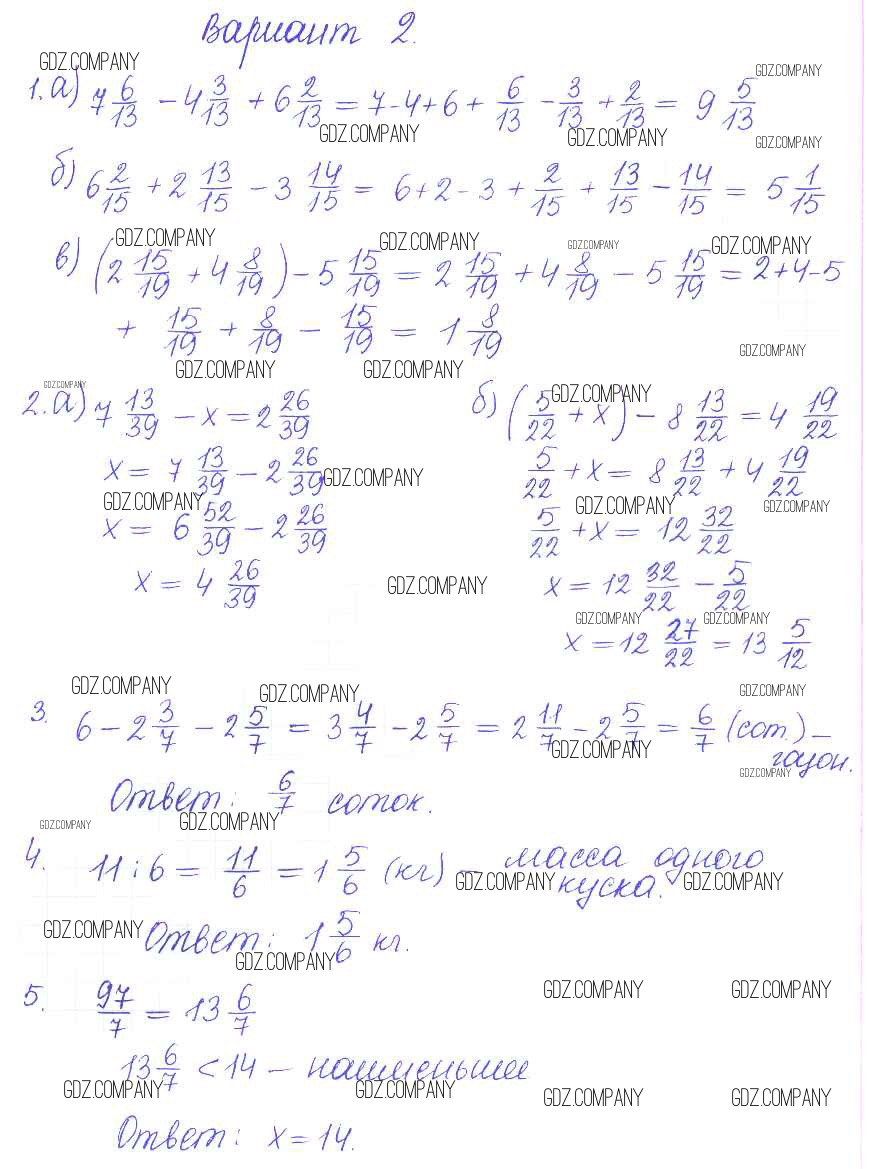 Вариант 2.
GDZ.COMPANY
GDZ.COMPANY
1. а) 7 6/13 - 4 3/13 + 6 2/13 = 7 - 4 + 6 + 6/13 - 3/13 + 2/13 = 9 5/13
GDZ.COMPANY GDZ.COMPANY GDZ.COMPANY
б) 6 2/15 + 2 13/15 - 3 14/15 = 6 + 2 - 3 + 2/15 + 13/15 - 14/15 = 5 1/15
GDZ.COMPANY GDZ.COMPANY GDZ.COMPANY GDZ.COMPANY
в) (2 15/19 + 4 8/19) - 5 15/19 = 2 15/19 + 4 8/19 - 5 15/19 = 2 + 4 - 5
+ 15/19 + 8/19 - 15/19 = 1 8/19
GDZ.COMPANY
GDZ.COMPANY GDZ.COMPANY
GDZ.COMPANY GDZ.COMPANY
2. а) 7 13/39 - x = 2 26/39
x = 7 13/39 - 2 26/39
GDZ.COMPANY
GDZ.COMPANY
x = 6 52/39 - 2 26/39
x = 4 26/39
GDZ.COMPANY
б) (5/22 + x) - 8 13/22 = 4 19/22
5/22 + x = 8 13/22 + 4 19/22
GDZ.COMPANY GDZ.COMPANY
5/22 + x = 12 32/22
x = 12 32/22 - 5/22
GDZ.COMPANY GDZ.COMPANY
x = 12 27/22 = 13 5/12
GDZ.COMPANY GDZ.COMPANY GDZ.COMPANY
3. 6 - 2 3/7 - 2 5/7 = 3 4/7 - 2 5/7 = 2 11/7 - 2 5/7 = 6/7 (сот.) -
газон.
GDZ.COMPANY
GDZ.COMPANY
Ответ: 6/7 соток.
GDZ.COMPANY GDZ.COMPANY
4. 11 : 6 = 11/6 = 1 5/6 (кг) - масса одного
куска.
GDZ.COMPANY GDZ.COMPANY
GDZ.COMPANY
Ответ: 1 5/6 кг.
GDZ.COMPANY
5. 97/7 = 13 6/7
GDZ.COMPANY GDZ.COMPANY
13 6/7 < 14 - наименьшее
GDZ.COMPANY GDZ.COMPANY GDZ.COMPANY GDZ.COMPANY
Ответ: x = 14.